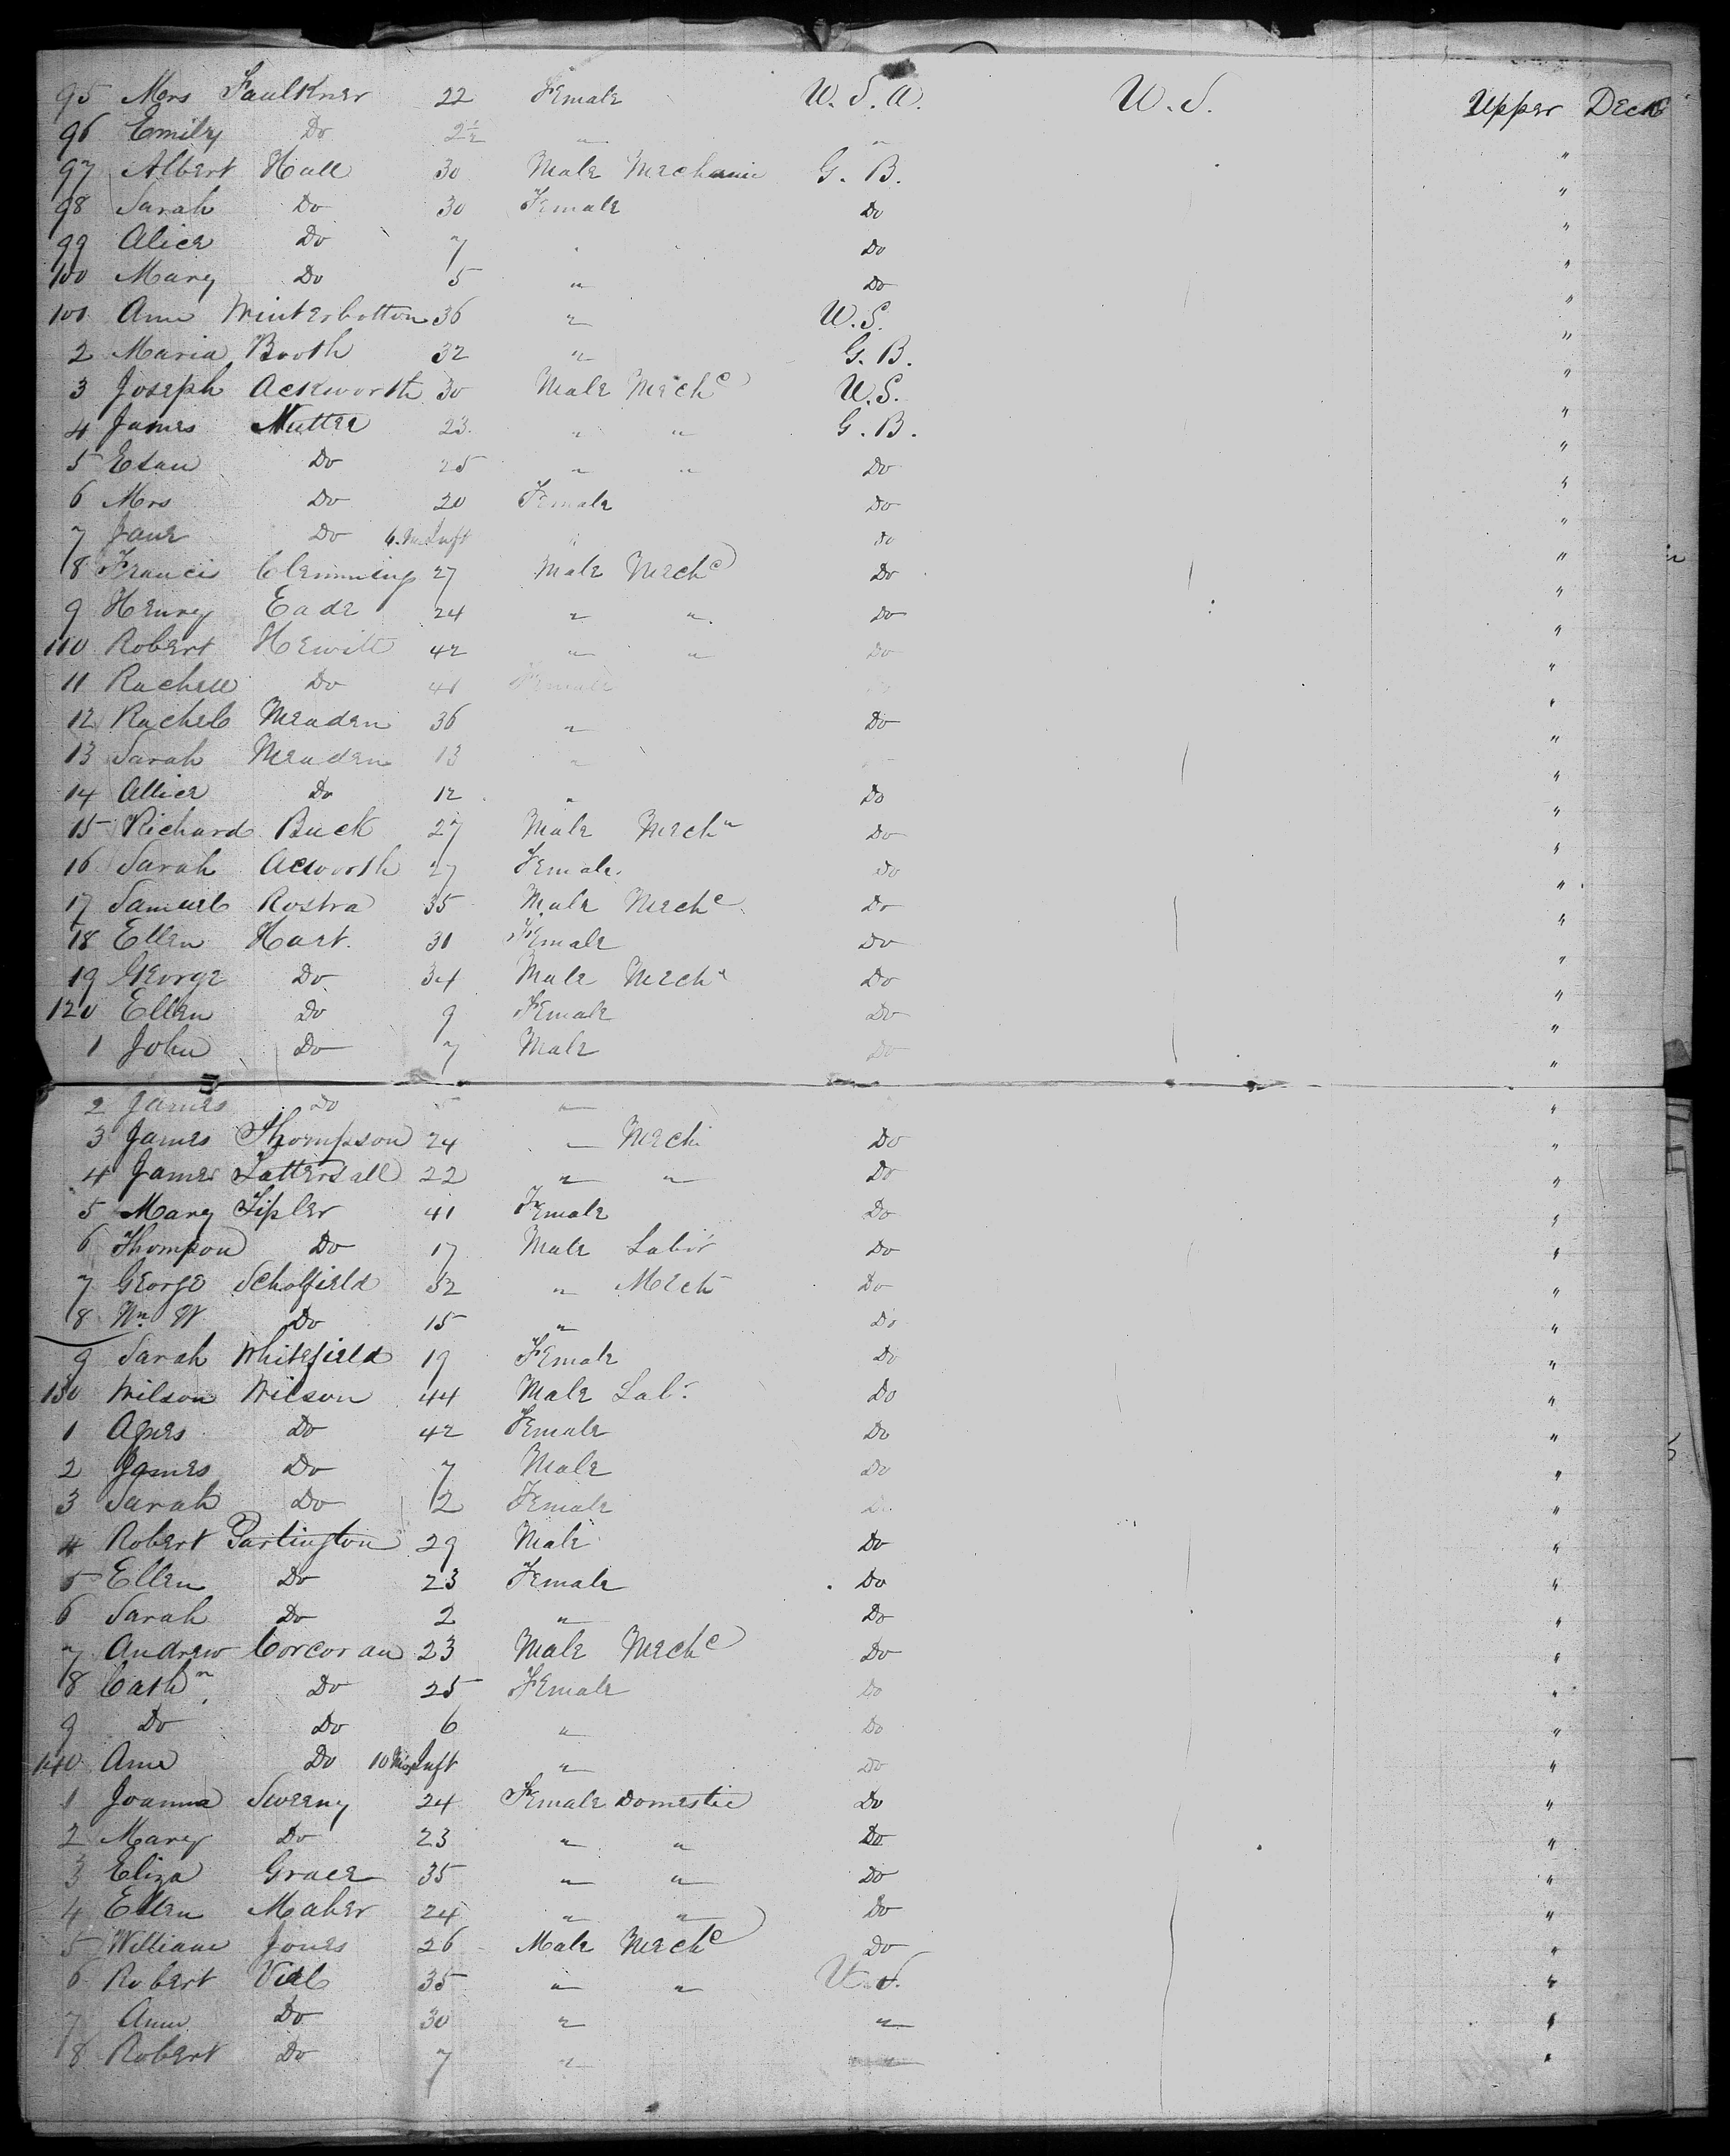 95 Mrs Faulkner 22 Female U.S.A. U.S. Upper Deck
96 Emily Do 2½ " " "
97 Albert Hall 30 Male Mechanic G.B. "
98 Sarah Do 30 Female Do "
99 Alice Do 7 " Do "
100 Mary Do 5 " Do "
101 Ann Winterbottom 36 " U.S. "
2 Maria Booth 32 " G.B. "
3 Joseph Ackworth 30 Male Mechc U.S. "
4 James Nutter 23 " " G.B. "
5 Esau Do 25 " " Do "
6 Mrs Do 20 Female Do "
7 Jane Do 6.M.Inft " Do "
8 Francis Clemming 27 Male Mechc Do "
9 Henry Eade 24 " " Do "
110 Robert Hewitt 42 " " Do "
11 Rachell Do 41 Female "
12 Rachel Meaden 36 " Do "
13 Sarah Meaden 13 " "
14 Allice Do 12 " Do "
15 Richard Buck 27 Male Mech Do "
16 Sarah Acworth 27 Female Do "
17 Samuel Rostra 35 Male Mechc Do "
18 Ellen Hart 31 Female Do "
19 George Do 34 Male Mechc Do "
120 Ellen Do 9 Female Do "
1 John Do 7 Male Do "
2 James Do " "
3 James Thompson 24 " Mech Do "
4 James Tattersall 22 " " Do "
5 Mary Tipler 41 Female Do "
6 Thompson Do 17 Male Labor Do "
7 George Scholfield 32 " Mech Do "
8 Wm W Do 15 " Do "
9 Sarah Whitefield 19 Female Do "
130 Wilson Wilson 44 Male Labr Do "
1 Agnes Do 42 Female Do "
2 James Do 7 Male Do "
3 Sarah Do 2 Female Do "
4 Robert Partington 29 Male Do "
5 Ellen Do 23 Female Do "
6 Sarah Do 2 " Do "
7 Andrew Corcoran 23 Male Mechc Do "
8 Cathn Do 25 Female Do "
9 Do Do 6 " Do "
140 Ann Do 10 Mos Inft " Do "
1 Joanna Sweeny 24 Female Domestic Do "
2 Mary Do 23 " " Do "
3 Eliza Grace 35 " " Do "
4 Ellen Maher 24 " " Do "
5 William Jones 26 Male Mechc Do "
6 Robert Viel 35 " " U.S. "
7 Ann Do 30 " " "
8 Robert Do 7 " " "